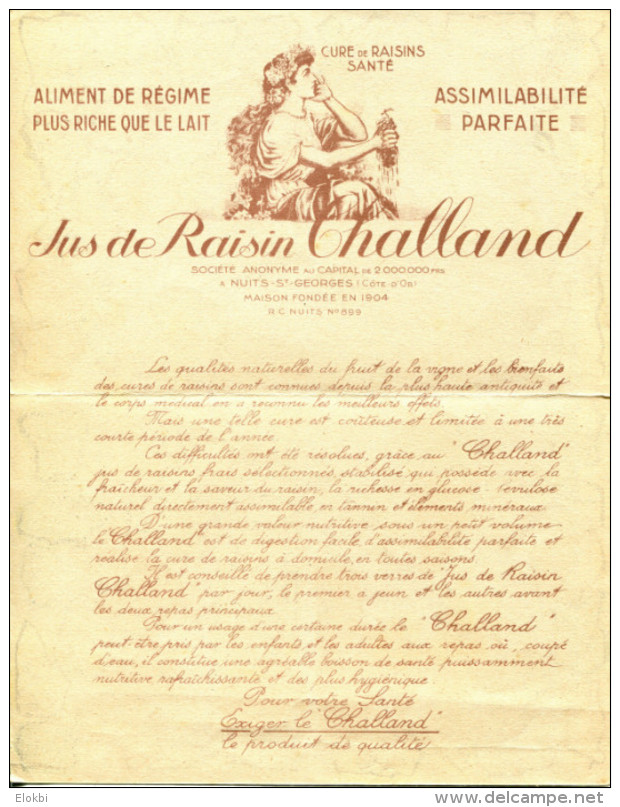 CURE DE RAISINS
SANTÉ
ALIMENT DE RÉGIME
PLUS RICHE QUE LE LAIT
ASSIMILABILITÉ
PARFAITE
Jus de Raisin Challand
SOCIÉTÉ ANONYME AU CAPITAL DE 2.000.000 FRS
A NUITS-ST-GEORGES (CÔTE-D'OR)
MAISON FONDÉE EN 1904
R.C. NUITS No 899
Les qualités naturelles du fruit de la vigne et les bienfaits
des cures de raisins sont connues depuis la plus haute antiquité et
le corps médical en a reconnu les meilleurs effets.
Mais une telle cure est coûteuse et limitée à une très
courte période de l'année.
Ces difficultés ont été résolues, grâce au "Challand"
jus de raisins frais sélectionnés, stabilisé qui possède avec la
fraîcheur et la saveur du raisin, la richesse en glucose-lévulose
naturel directement assimilable, en tannin et éléments minéraux.
D'une grande valeur nutritive sous un petit volume
le "Challand" est de digestion facile, d'assimilabilité parfaite et
réalise la cure de raisins à domicile, en toutes saisons.
Il est conseillé de prendre trois verres de "Jus de Raisin
Challand" par jour, le premier à jeun et les autres avant
les deux repas principaux.
Pour un usage d'une certaine durée le "Challand"
peut être pris par les enfants et les adultes aux repas où, coupé
d'eau, il constitue une agréable boisson de santé puissamment
nutritive, rafraîchissante et des plus hygiénique.
Pour votre Santé
Exiger le "Challand"
le produit de qualité.
Elokbi
www.delcampe.net